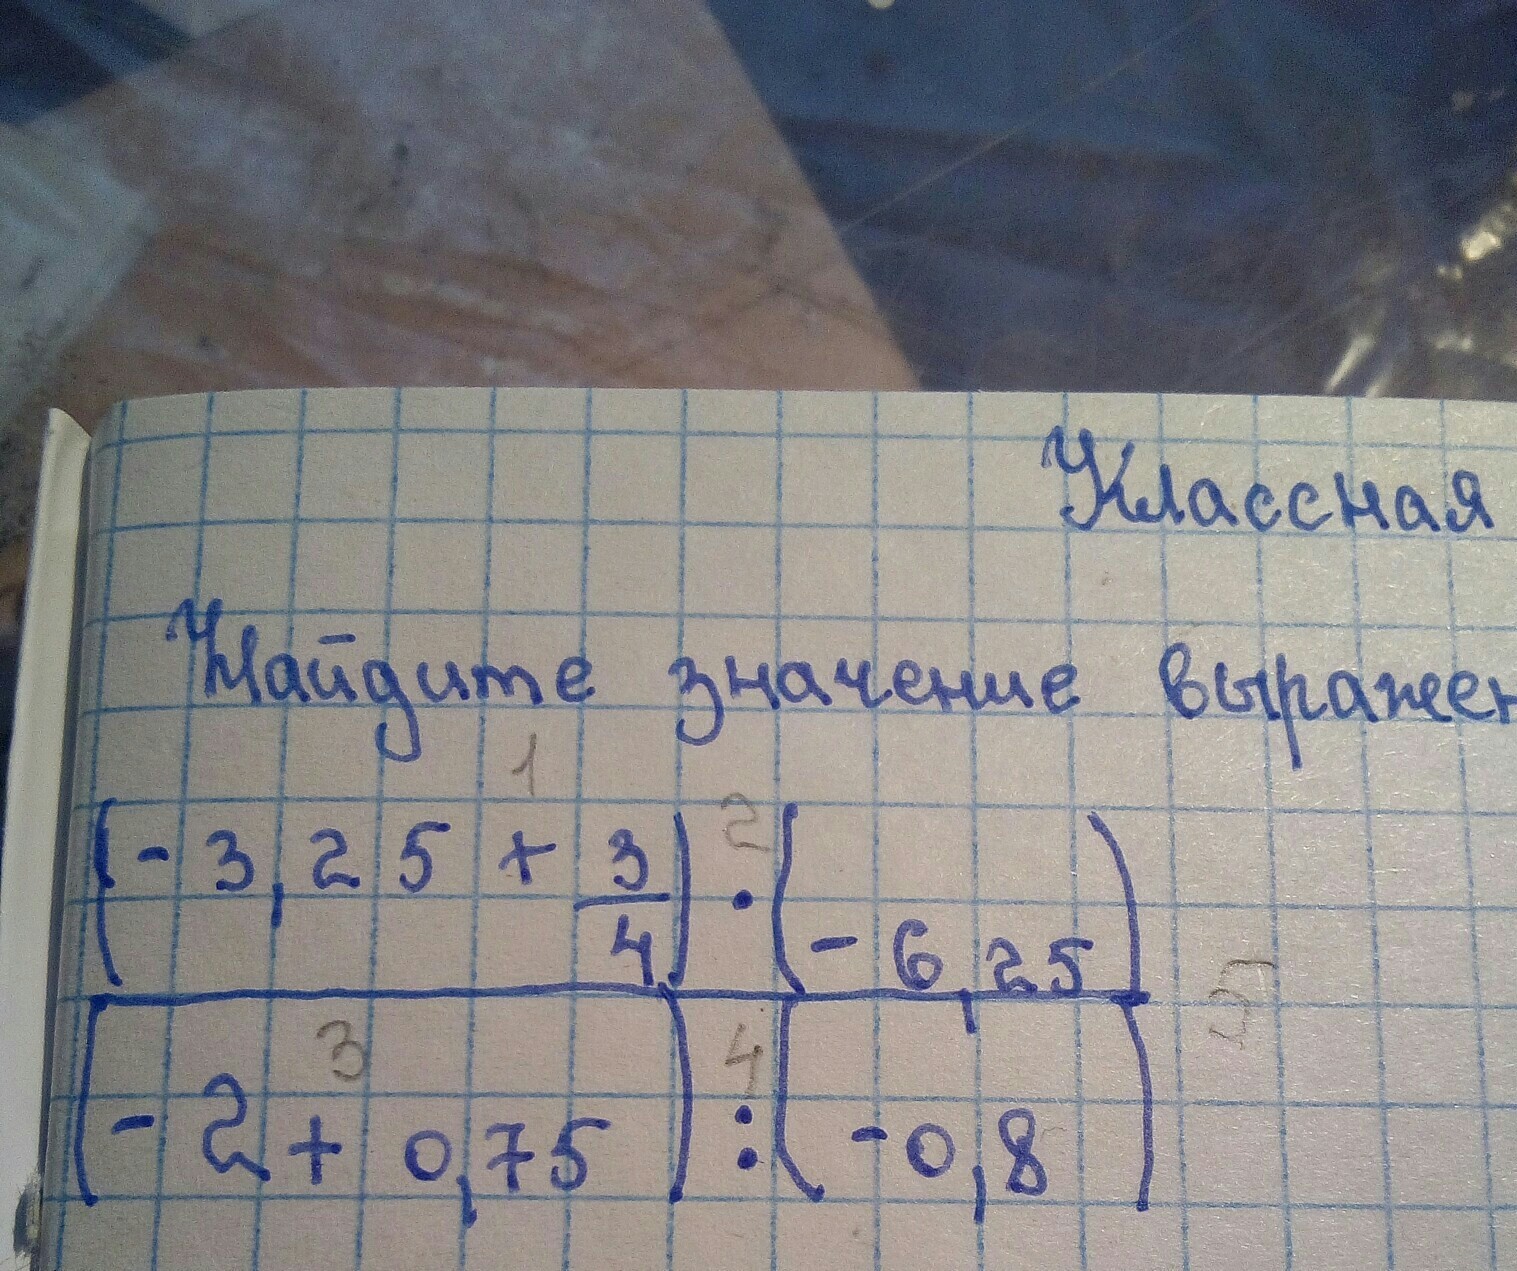 Классная
Найдите значение выражен
1 2
(-3,25 + 3/4) · (-6,25)
5
3 4
(-2 + 0,75) : (-0,8)